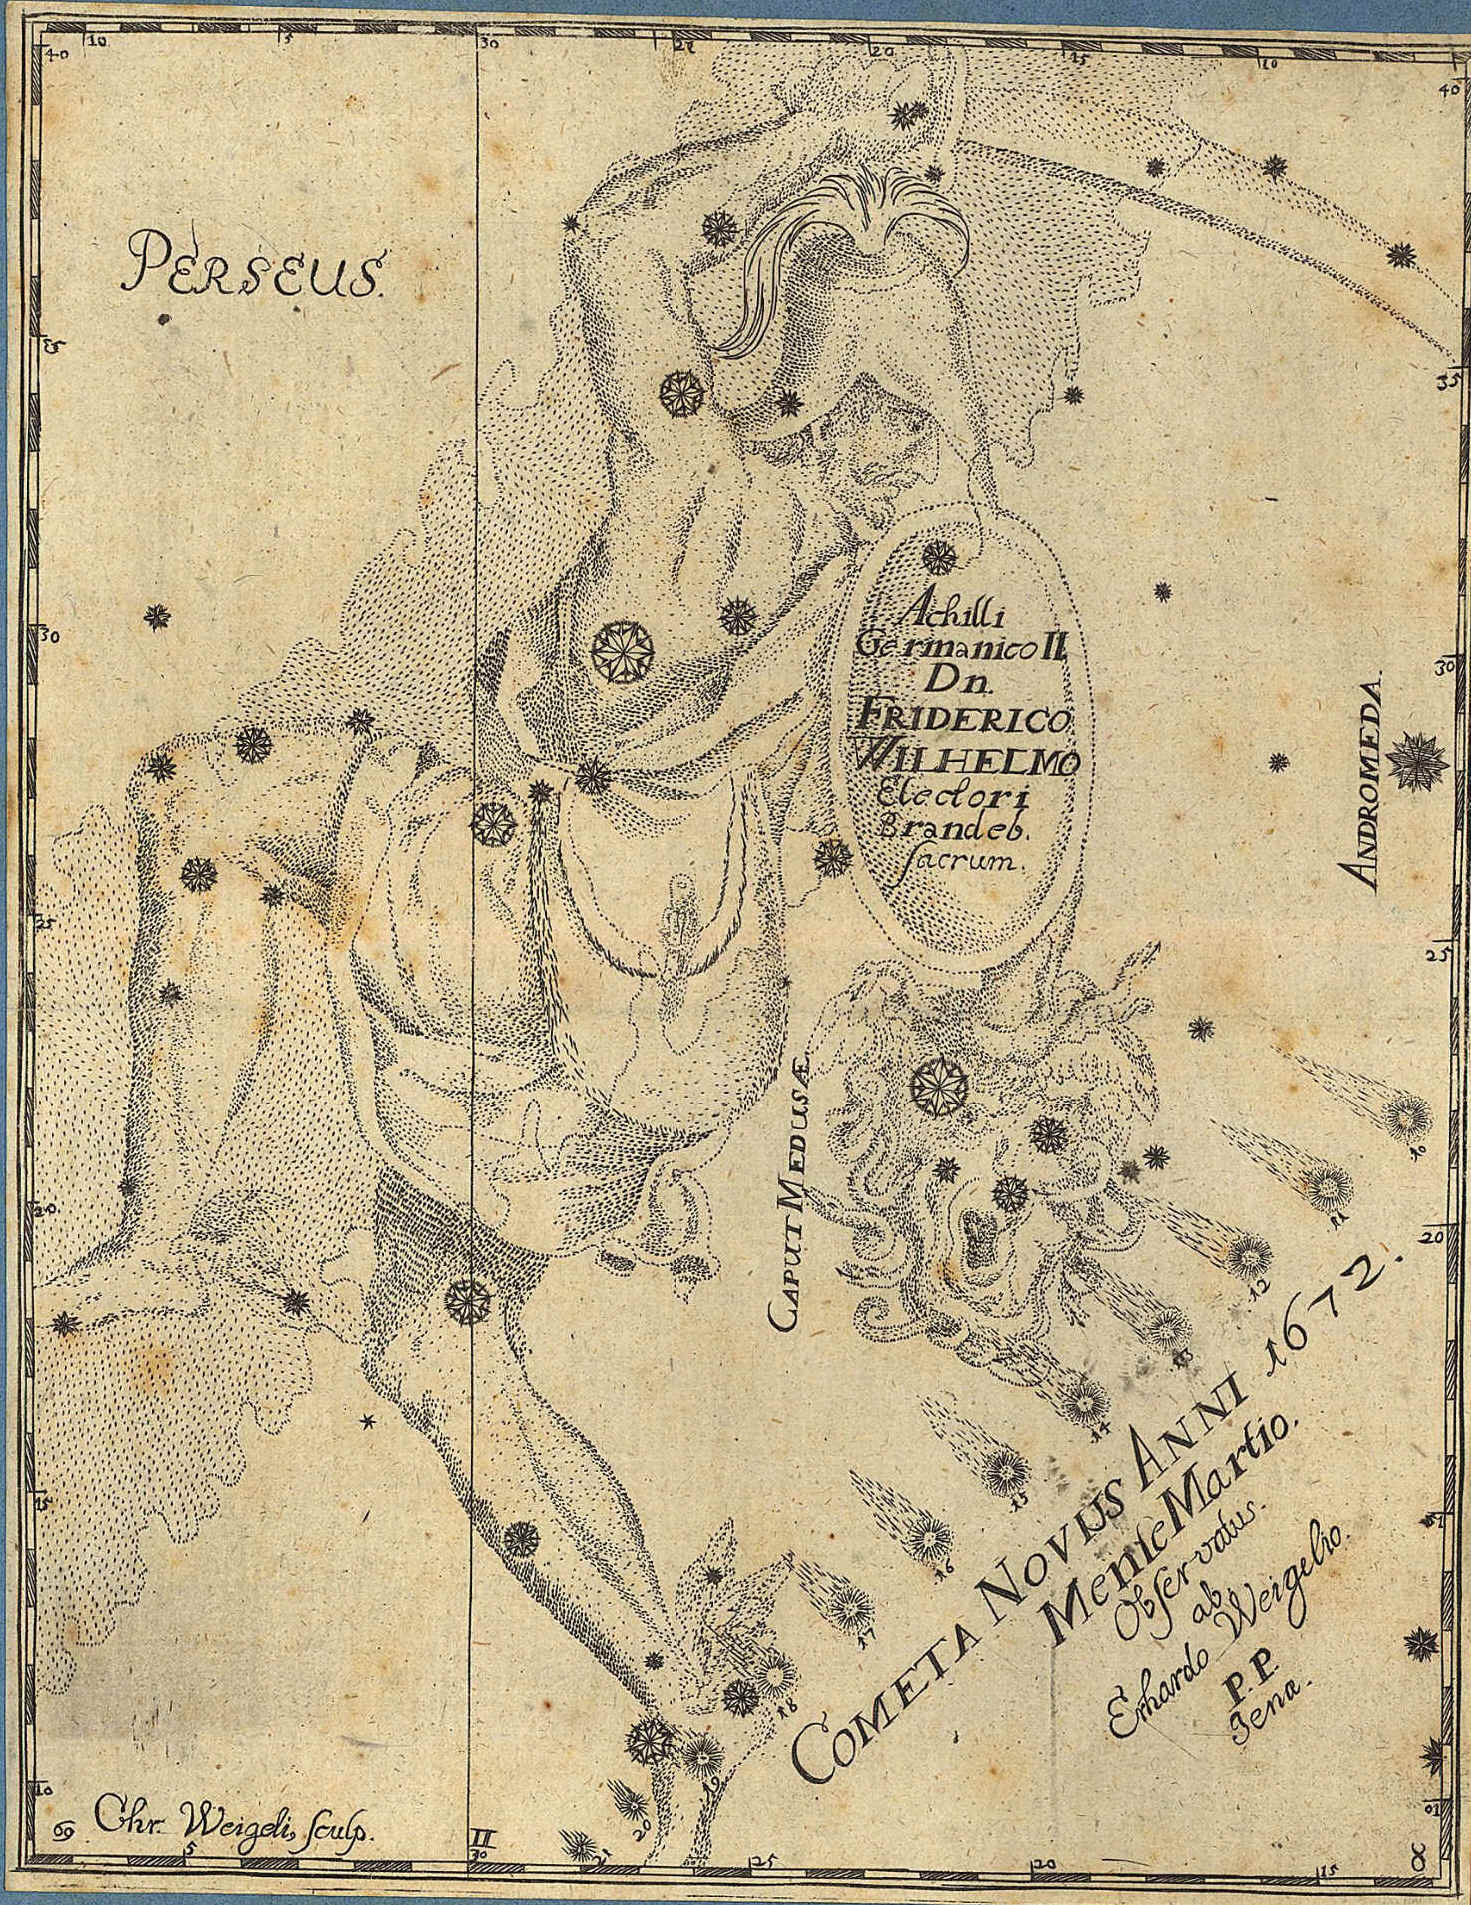 10 5 30 25 20 15 10
40 40
PERSEUS.
35 35
30 30
Achilli
Germanico II
Dn.
FRIDERICO
WILHELMO
Electori
Brandeb.
sacrum.
ANDROMEDA.
25 25
CAPUT MEDUSÆ
10
11
12
13
14
15
16
17
18
19
20
21
20 20
COMETA NOVUS ANNI 1672.
Mense Martio.
Observatus.
ab
Erhardo Weigelio.
P.P.
Jenæ.
15
10 10
69 Chr. Weigeli, sculp.
II
5 30 25 20 15